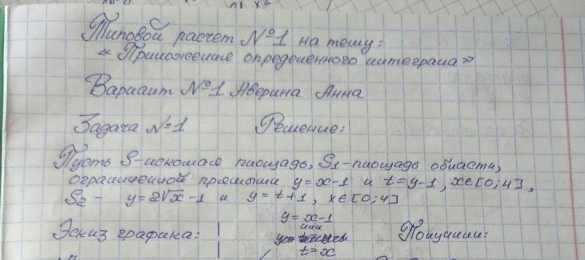 Типовой расчет №1 на тему:
« Приложение определенного интеграла»
Вариант №1 Аверина Анна
Задача №1 Решение:
Пусть S-искомая площадь, S₁-площадь области,
ограниченной прямыми y=x-1 и t=y-1, x∈[0;4],
S₂ - y=2√x-1 и y=t+1, x∈[0;4]
y=x-1
или
Эскиз графика: Получили:
t=x